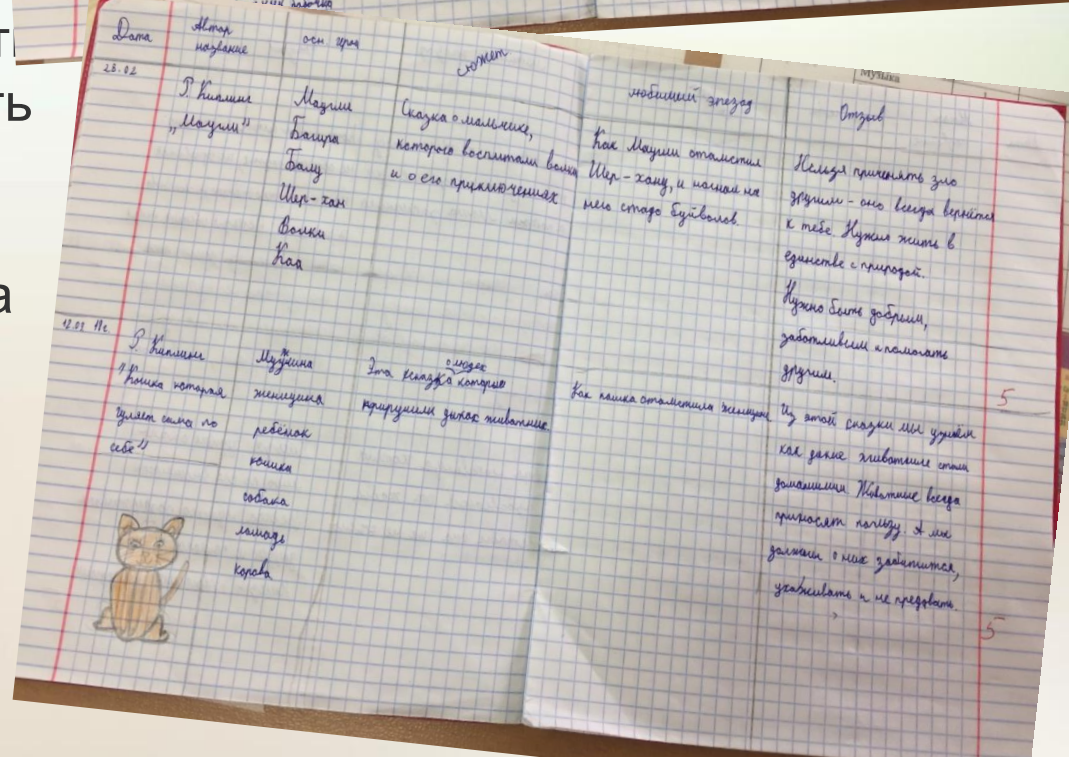 Дата
Автор
название
осн герои
сюжет
любимый эпизод
Отзыв
23.02
Р. Киплинг
„Маугли"
Маугли
Багира
Балу
Шер-хан
Волки
Каа
Сказка о мальчике,
которого воспитали волки
и о его приключениях
Как Маугли отомстил
Шер-хану, и погнал на
него стадо буйволов.
Нельзя причинять зло
другим - оно всегда вернётся
к тебе. Нужно жить в
единстве с природой.
Нужно быть добрым,
заботливым и помогать
другим.
5
Р. Киплинг
"Кошка которая
гуляет сама по
себе"
Мужчина
женщина
ребёнок
кошка
собака
лошадь
корова
Эта сказка о людях которые
приручили диких животных
Как кошка отомстила женщине
Из этой сказки мы узнаём
как дикие животные стали
домашними Животные всегда
приносят пользу. А мы
должны о них заботится,
ухаживать и не предовать.
5
Музыка
ть
а